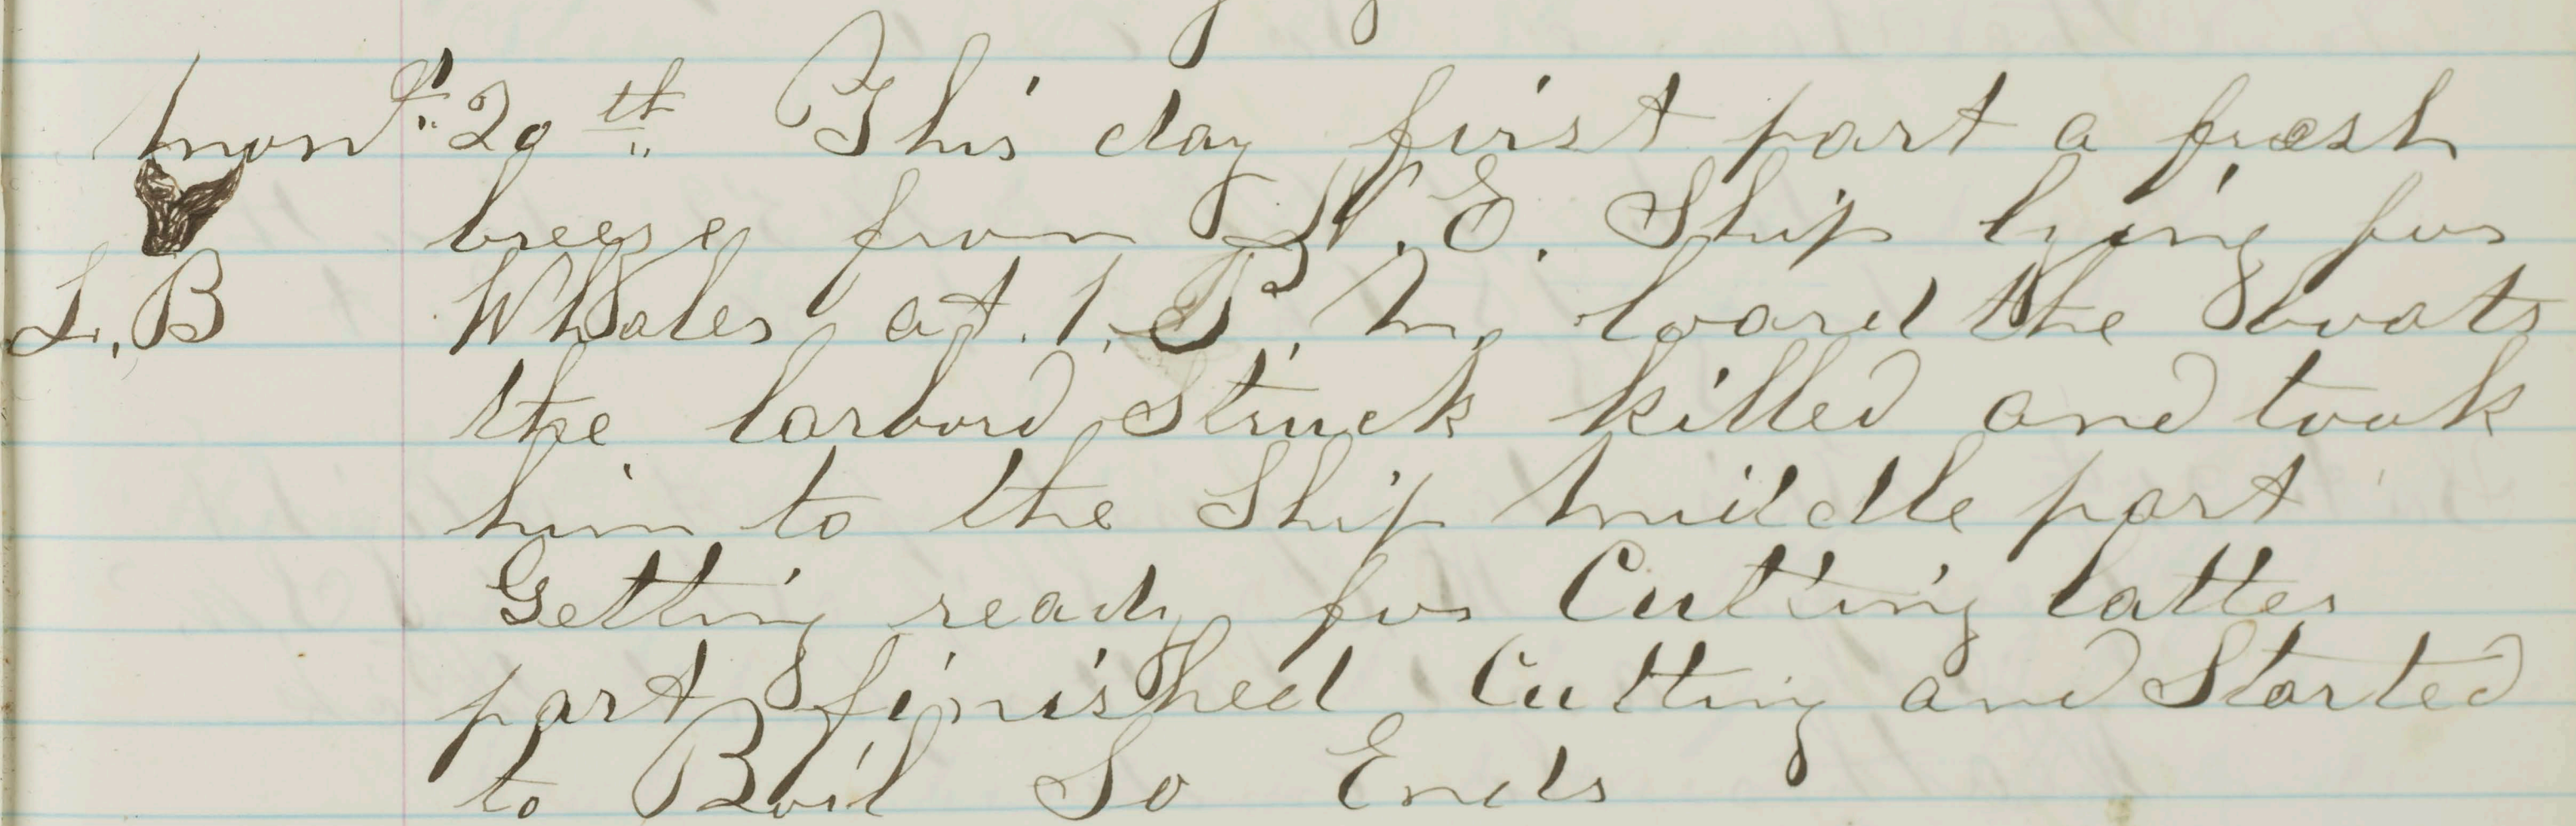 mond 29th This day first part a fresh
breeze from N. E. Ship lying for
L. B Whales at. 1. P. M. loard the boats
the larbord Struck killed and took
him to the Ship middle part
Getting ready for Cutting latter
part finished Cutting and Started
to Boil So Ends